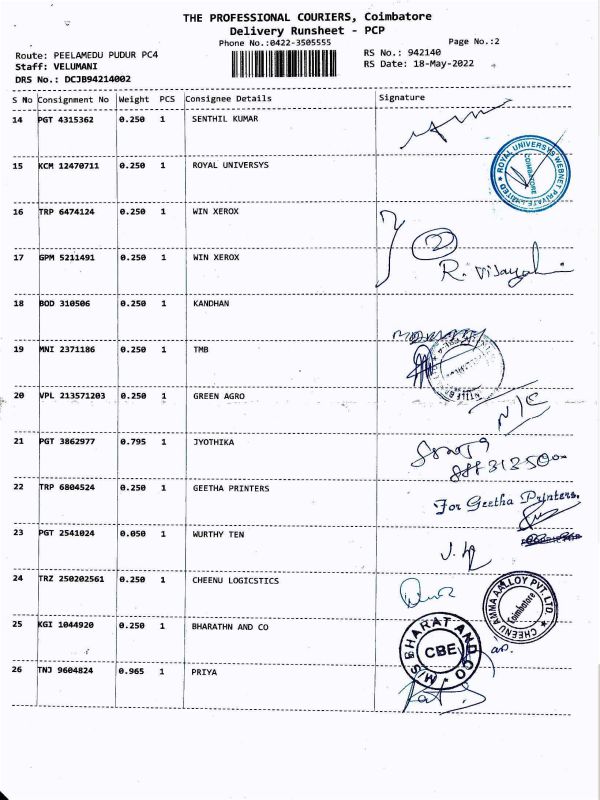 THE PROFESSIONAL COURIERS, Coimbatore
Delivery Runsheet - PCP
Phone No.:0422-3505555
Page No.:2
Route: PEELAMEDU PUDUR PC4
RS No.: 942140
Staff: VELUMANI
RS Date: 18-May-2022
DRS No.: DCJB94214002
S No Consignment No Weight PCS Consignee Details Signature
14 PGT 4315362 0.250 1 SENTHIL KUMAR
15 KCM 12470711 0.250 1 ROYAL UNIVERSYS
ROYAL UNIVERSYS WEBNET PRIVATE LIMITED ★ COIMBATORE
16 TRP 6474124 0.250 1 WIN XEROX
2
17 GPM 5211491 0.250 1 WIN XEROX
R. Vijayal
18 BOD 310506 0.250 1 KANDHAN
19 MNI 2371186 0.250 1 TMB
20 VPL 213571203 0.250 1 GREEN AGRO
N/C
21 PGT 3862977 0.795 1 JYOTHIKA
22 TRP 6804524 0.250 1 GEETHA PRINTERS
For Geetha Printers,
23 PGT 2541024 0.050 1 WURTHY TEN
24 TRZ 250202561 0.250 1 CHEENU LOGICSTICS
CHEENU AMMA AALLOY PVT. LTD. ★ Coimbatore
25 KGI 1044920 0.250 1 BHARATHN AND CO
M/S BHARAT AND CO. CBE
26 TNJ 9604824 0.965 1 PRIYA